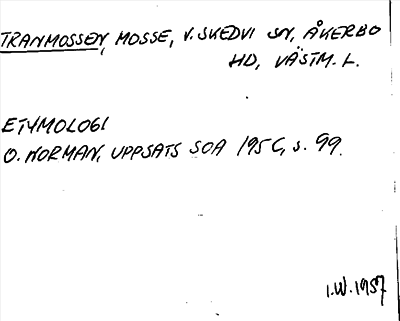 TRANMOSSEN, MOSSE, V. SKEDVI SN, ÅKERBO
HD, VÄSTM. L.
ETYMOLOGI
O. NORMAN, UPPSATS SOA 195C, s. 99.
I.W. 1957